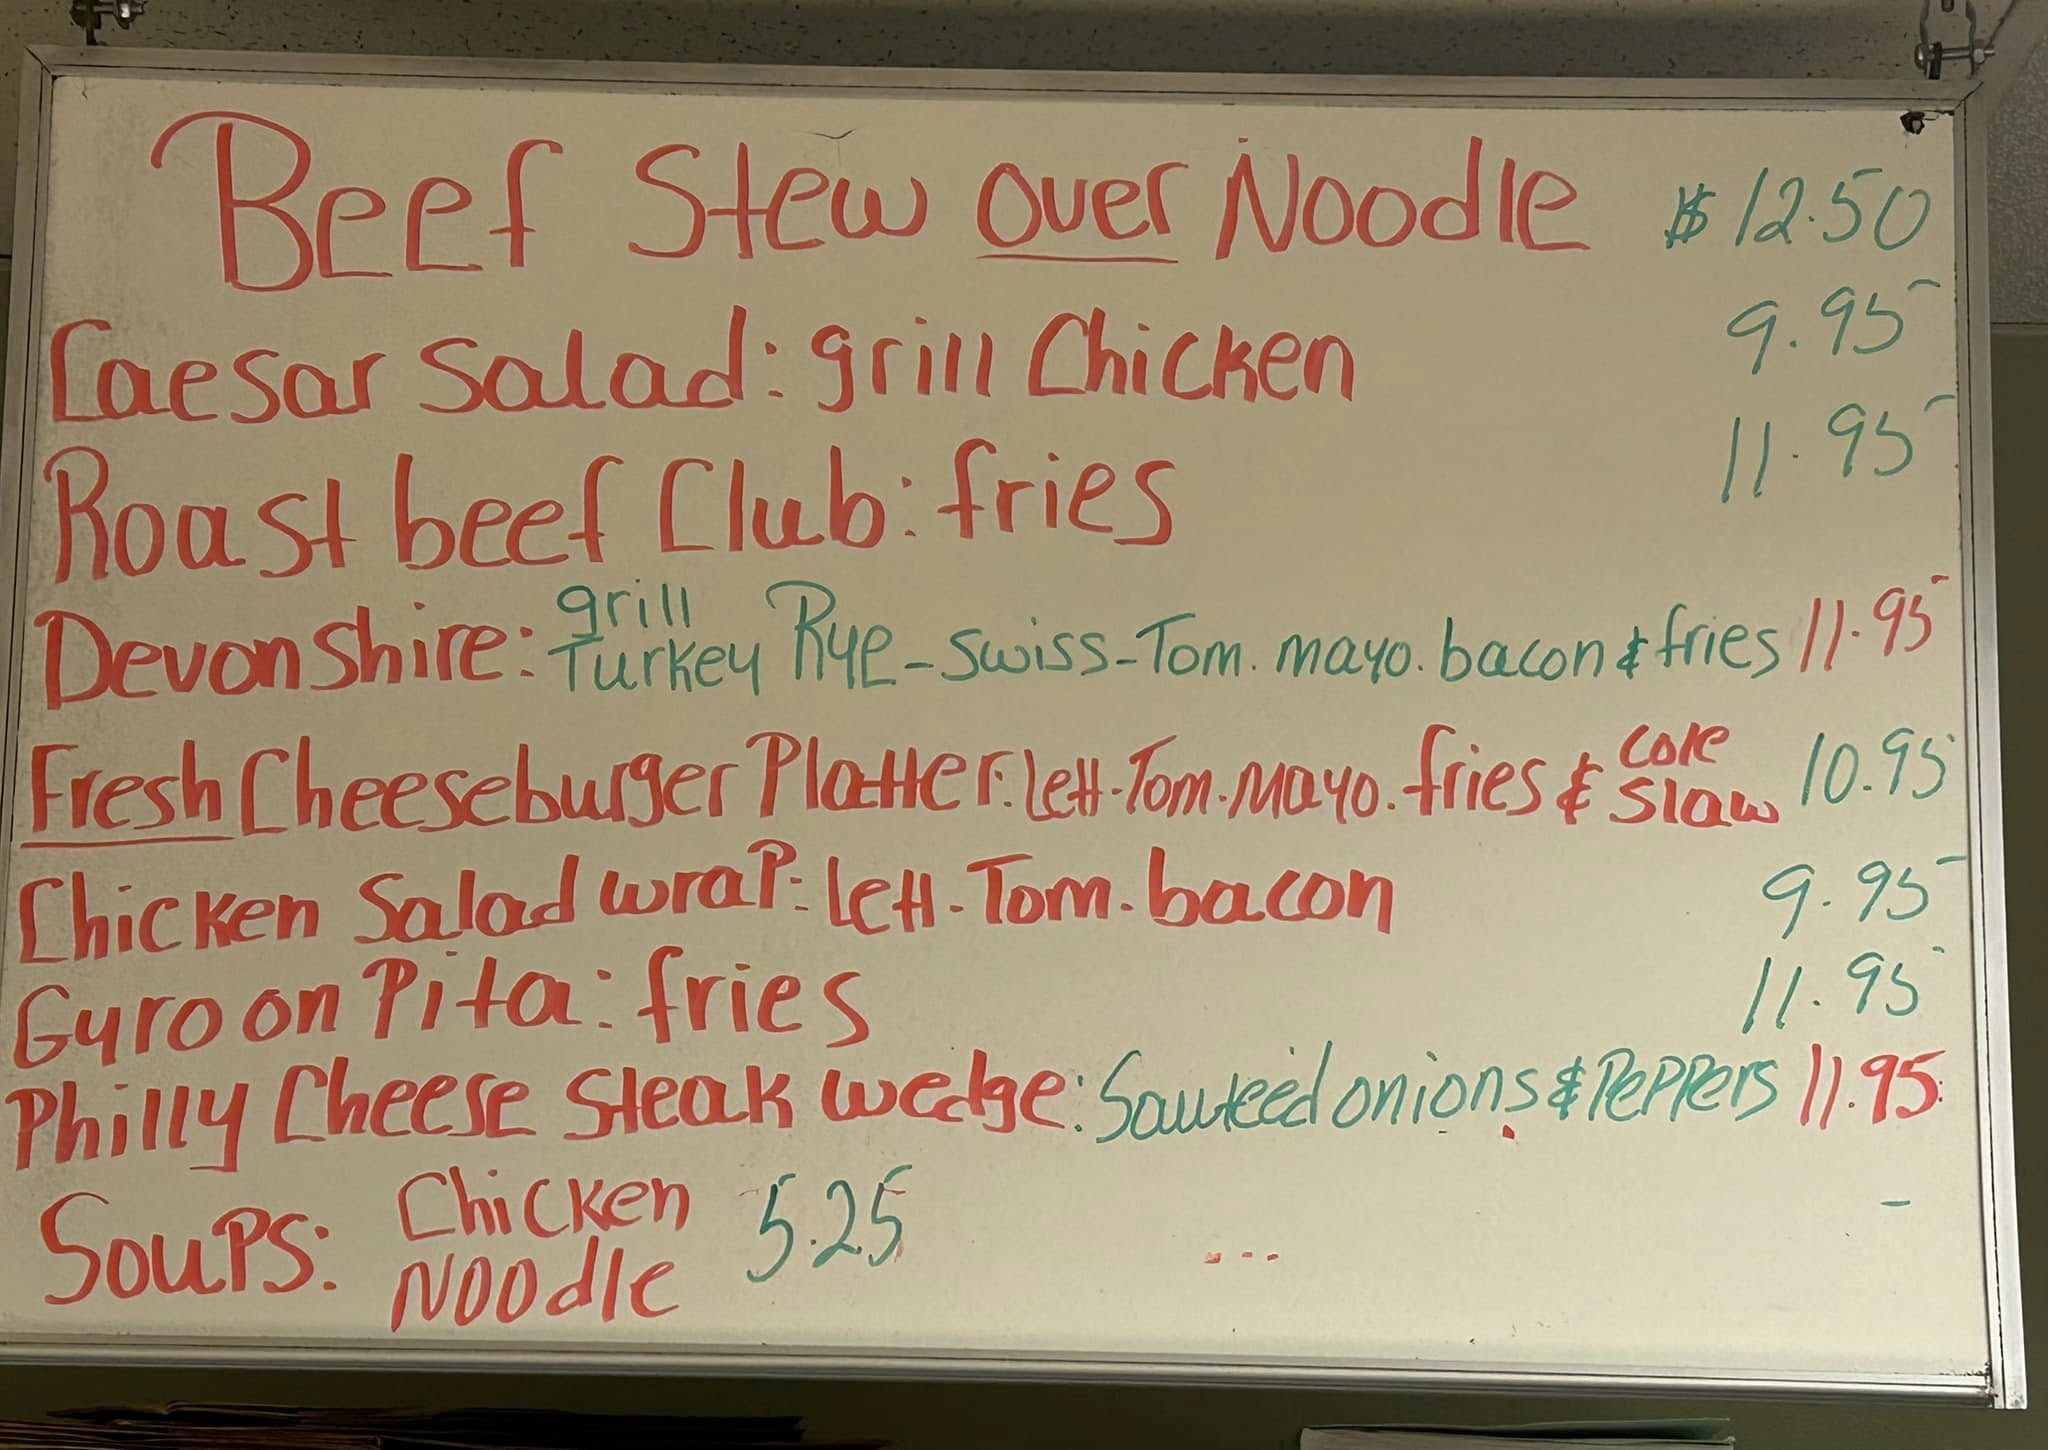 Beef Stew over Noodle $12.50
Caesar Salad: grill Chicken 9.95
Roast beef Club: fries 11.95
Devonshire: grill Turkey Rye-swiss-Tom. mayo. bacon & fries 11.95
Fresh Cheeseburger Platter: Lett.Tom.Mayo. fries & Cole Slaw 10.95
Chicken Salad wrap: Lett.Tom.bacon 9.95
Gyro on Pita: fries 11.95
Philly Cheese Steak wedge: Sauteéd onions & Peppers 11.95
Soups: Chicken Noodle 5.25